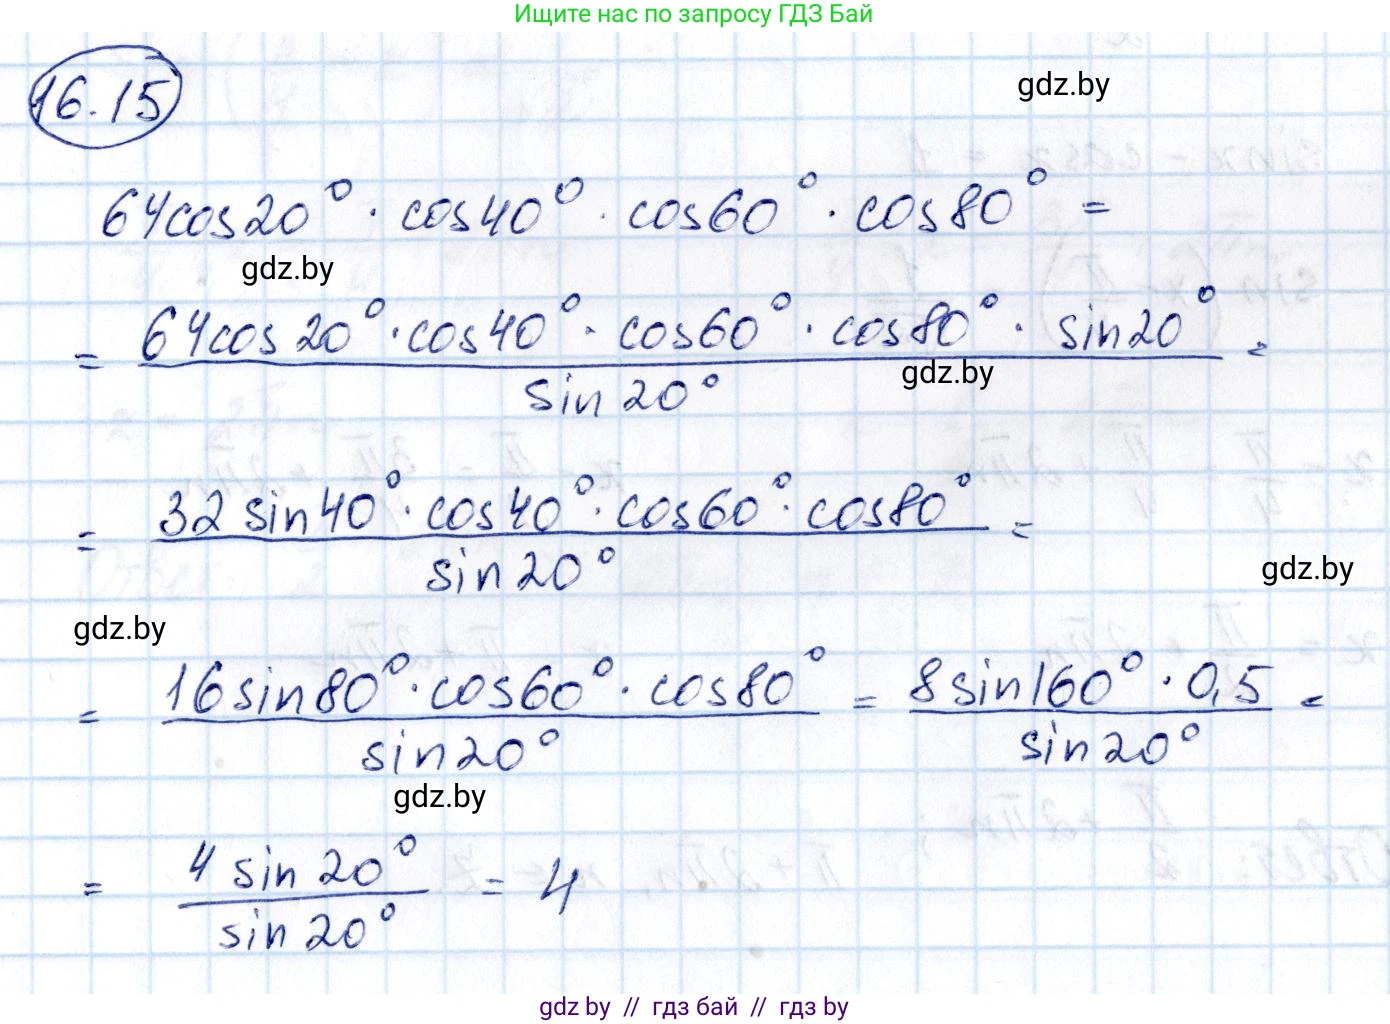 Ищите нас по запросу ГДЗ Бай
16.15
gdz.by
64cos20° · cos40° · cos60° · cos80° =
gdz.by
= 64cos20° · cos40° · cos60° · cos80° · sin20° / sin20° =
gdz.by
= 32 sin40° · cos40° · cos60° · cos80° / sin20° =
gdz.by
gdz.by
= 16sin80° · cos60° · cos80° / sin20° = 8sin160° · 0,5 / sin20° =
gdz.by
= 4 sin20° / sin20° = 4
gdz by // гдз бай // гдз by